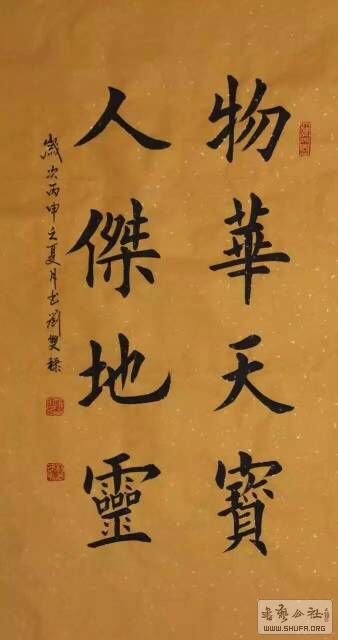 物華天寶
人傑地靈
歲次丙申之夏月書劉雙標
書藝公社
WWW.SHUFA.ORG